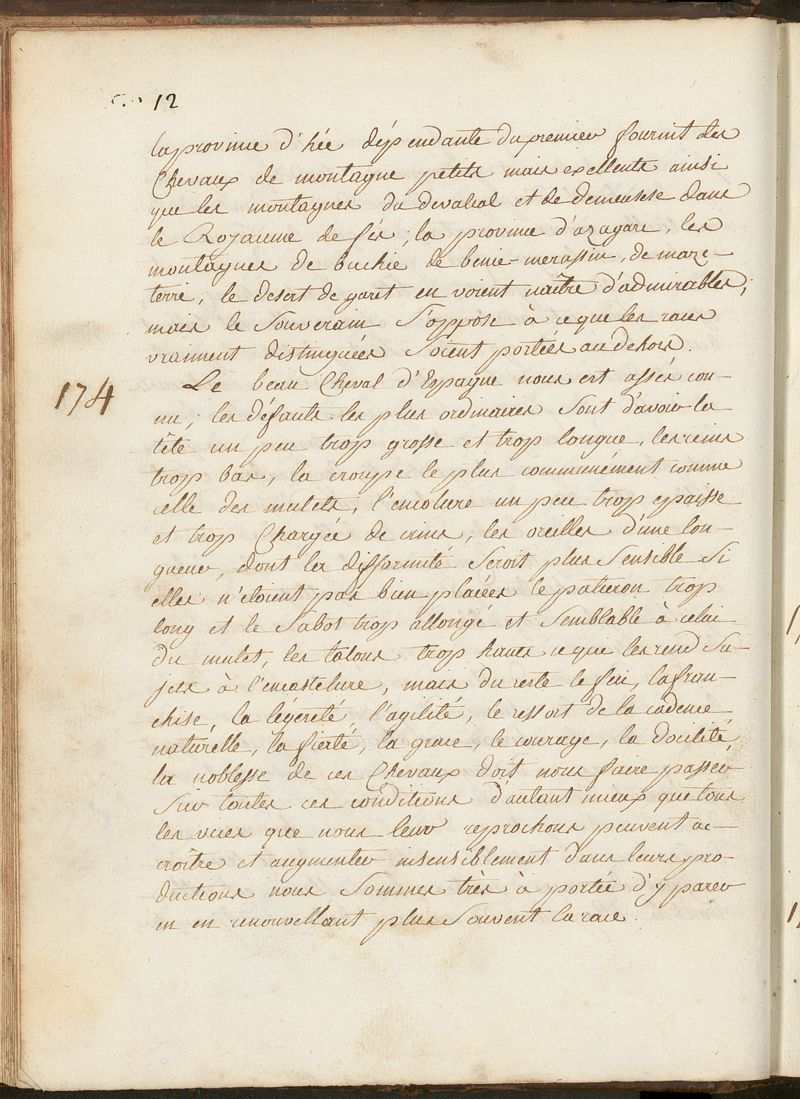 12
la province d'hée dépendante du premier fournit des
Chevaux de montagne petits mais excellents ainsi
que les montagnes du devaleal et de demensese dans
le Royaume de fés, la province d'azagare, les
montagnes de buchie de benie-merassin, de maze-
terre, le desert de garet en voient naître d'admirables;
mais le Souverain S'oppose à ce que les races
vraiment distinguées Soient portées au dehors.
174 Le beau Cheval d'Espagne nous est assés con-
nu; les défauts les plus ordinaires Sont d'avoir la
tête un peu trop grosse et trop longue, les reins
trop bas, la croupe le plus communément comme
celle des mulets, l'encolure un peu trop epaisse
et trop Chargée de crins, les oreilles d'une lon-
gueur, dont la difformité Seroit plus Sensible Si
elles n'etoient pas bien placées le paturon trop
long et le Sabot trop allongé et Semblable à celui
du mulet, les talons trop hauts ce que les rend Su-
jets à l'encastelure, mais du reste le feu, la fran-
chise, la légèreté, l'agilité, le ressort de la cadence
naturelle, la fierté, la grace, le courage, la docilité,
la noblesse de ces Chevaux doit nous faire passer
Sur toutes ces conditions d'autant mieux que tous
les vices que nous leur reprochons peuvent ac-
croître et augmenter insensiblement dans leurs pro-
ductions nous Sommes très à portée d'y parer
en en renouvellant plus Souvent la race.